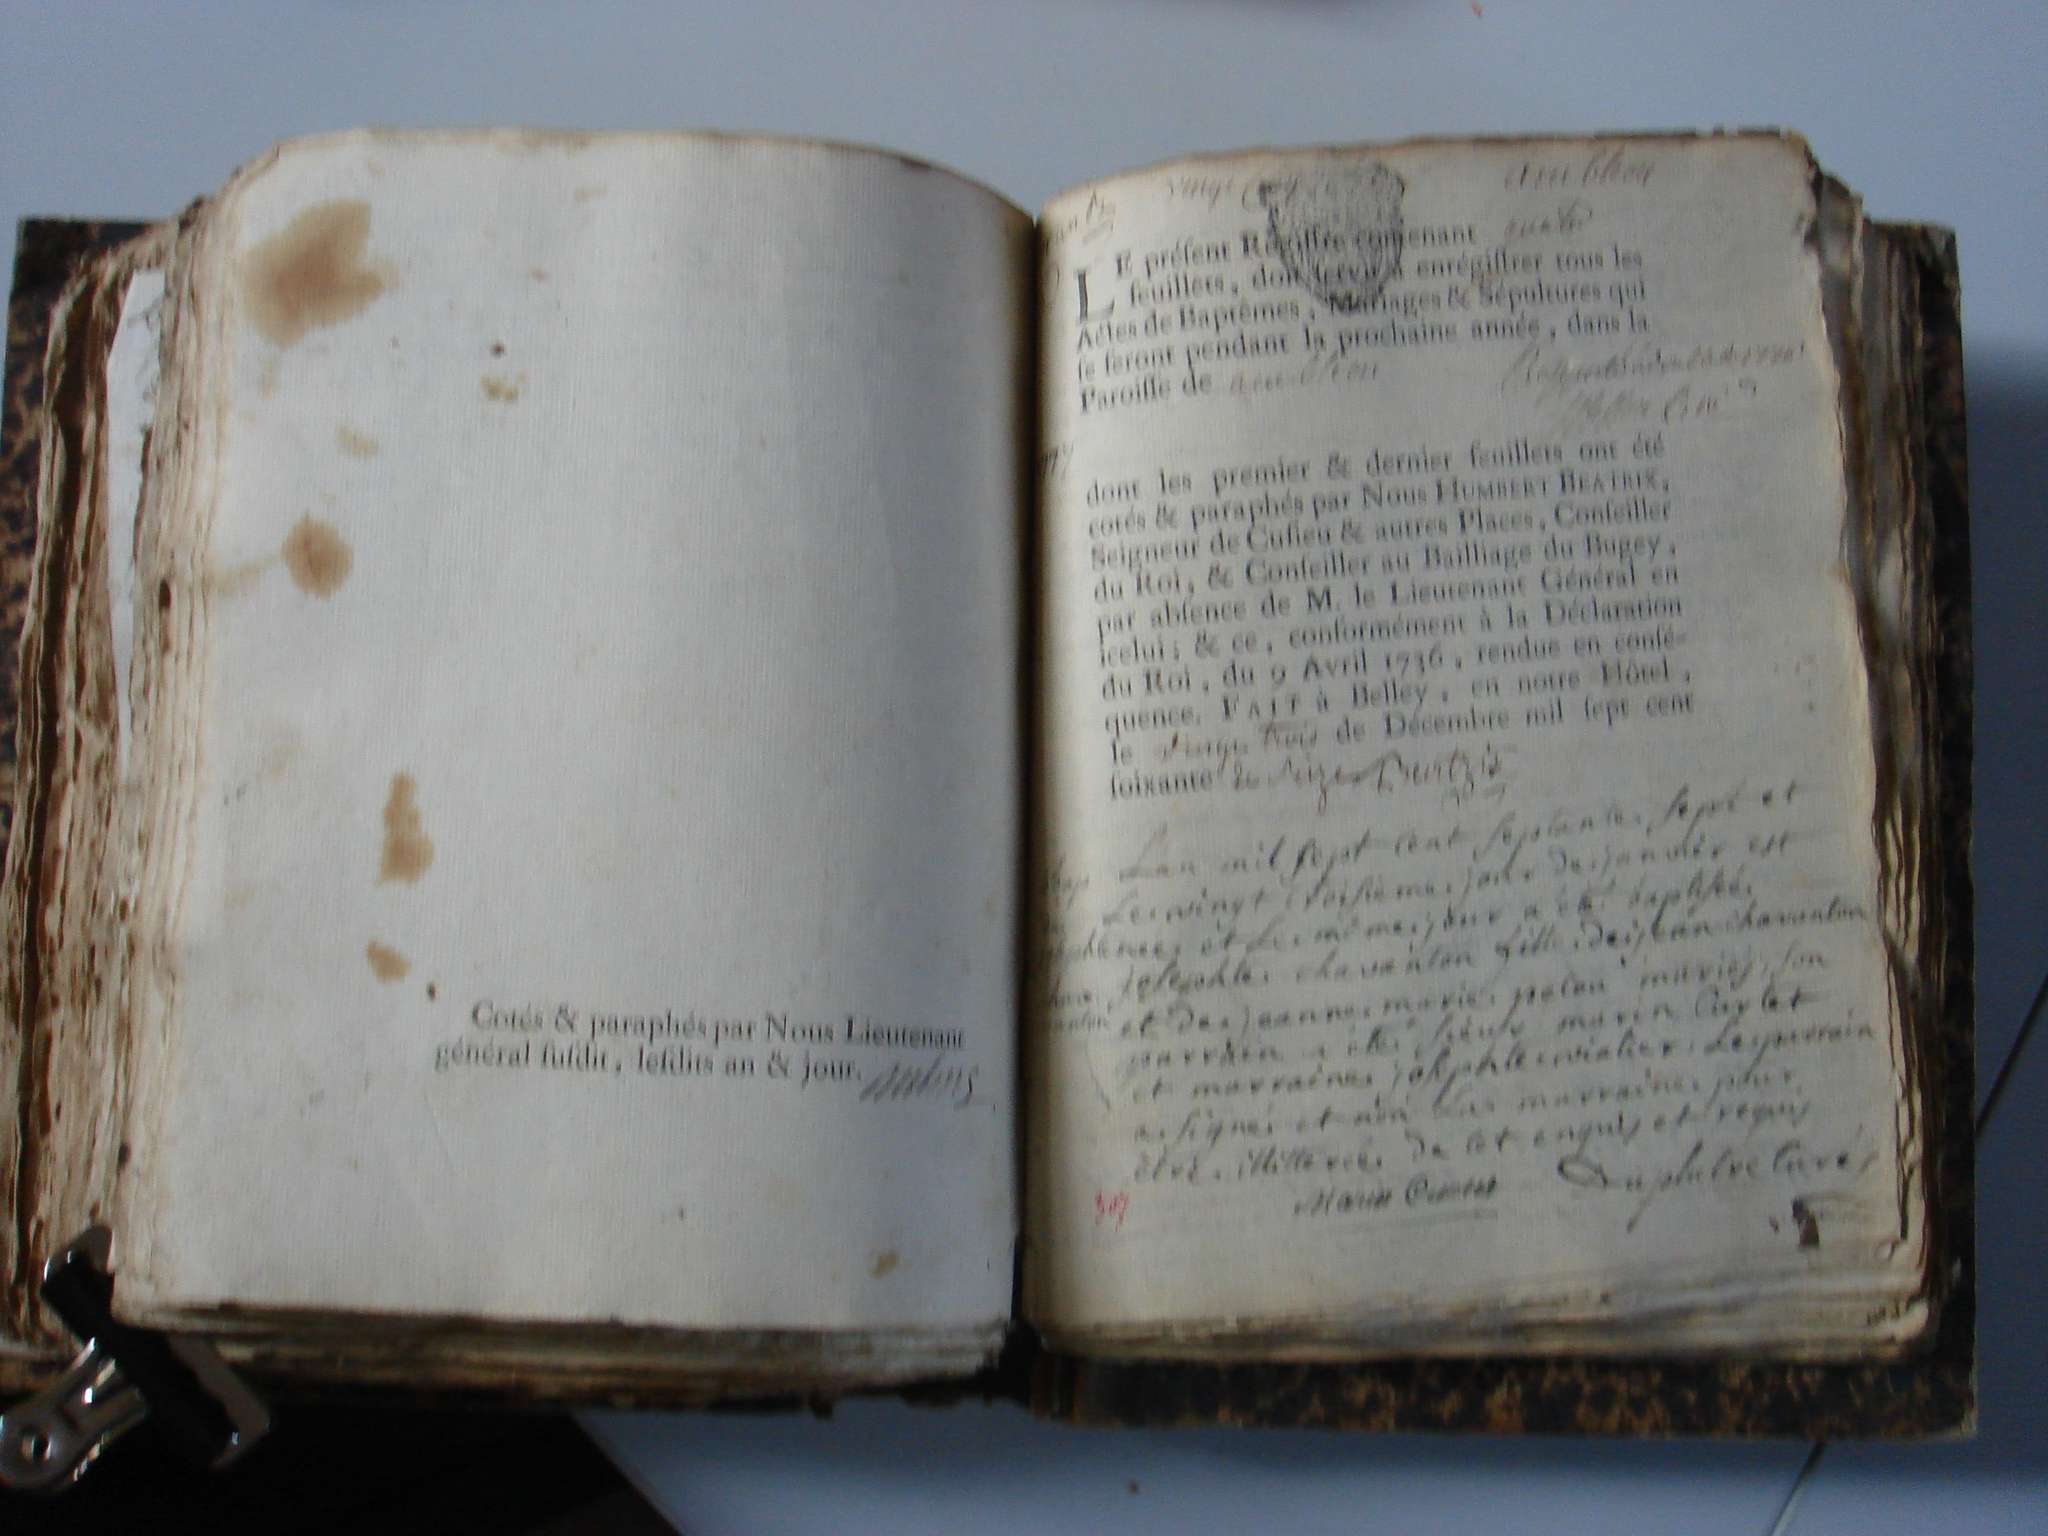 Cotés & paraphés par Nous Lieutenant
général ſuſdit, leſdits an & jour.
vingt
ambleon
LE préſent Regiſtre contenant quatre
feuillets, dont ſervir à enrégiſtrer tous les
Actes de Baptêmes, Mariages & Sépultures qui
ſe feront pendant la prochaine année, dans la
Paroiſſe de ambleon
dont les premier & dernier feuillets ont été
cotés & paraphés par Nous HUMBERT BEATRIX,
Seigneur de Cuſieu & autres Places, Conſeiller
du Roi, & Conſeiller au Bailliage du Bugey,
par abſence de M. le Lieutenant Général en
icelui; & ce, conformément à la Déclaration
du Roi, du 9 Avril 1736, rendue en conſé-
quence. FAIT à Belley, en notre Hôtel,
le vingt trois de Décembre mil ſept cent
ſoixante & seize
Lan mil sept cent septante sept et
le vingt troisieme jour de janvier est
née et le même jour a été baptisée
josephte chavanton fille de jean chavanton
et de jeanne marie pelou mariés, son
parrain a été sieur marin Curtet
et marraine josephte le parrain
a signé et non la marraine pour
être illitterée de cet enquis et requis
Marin Curtet
curé
307